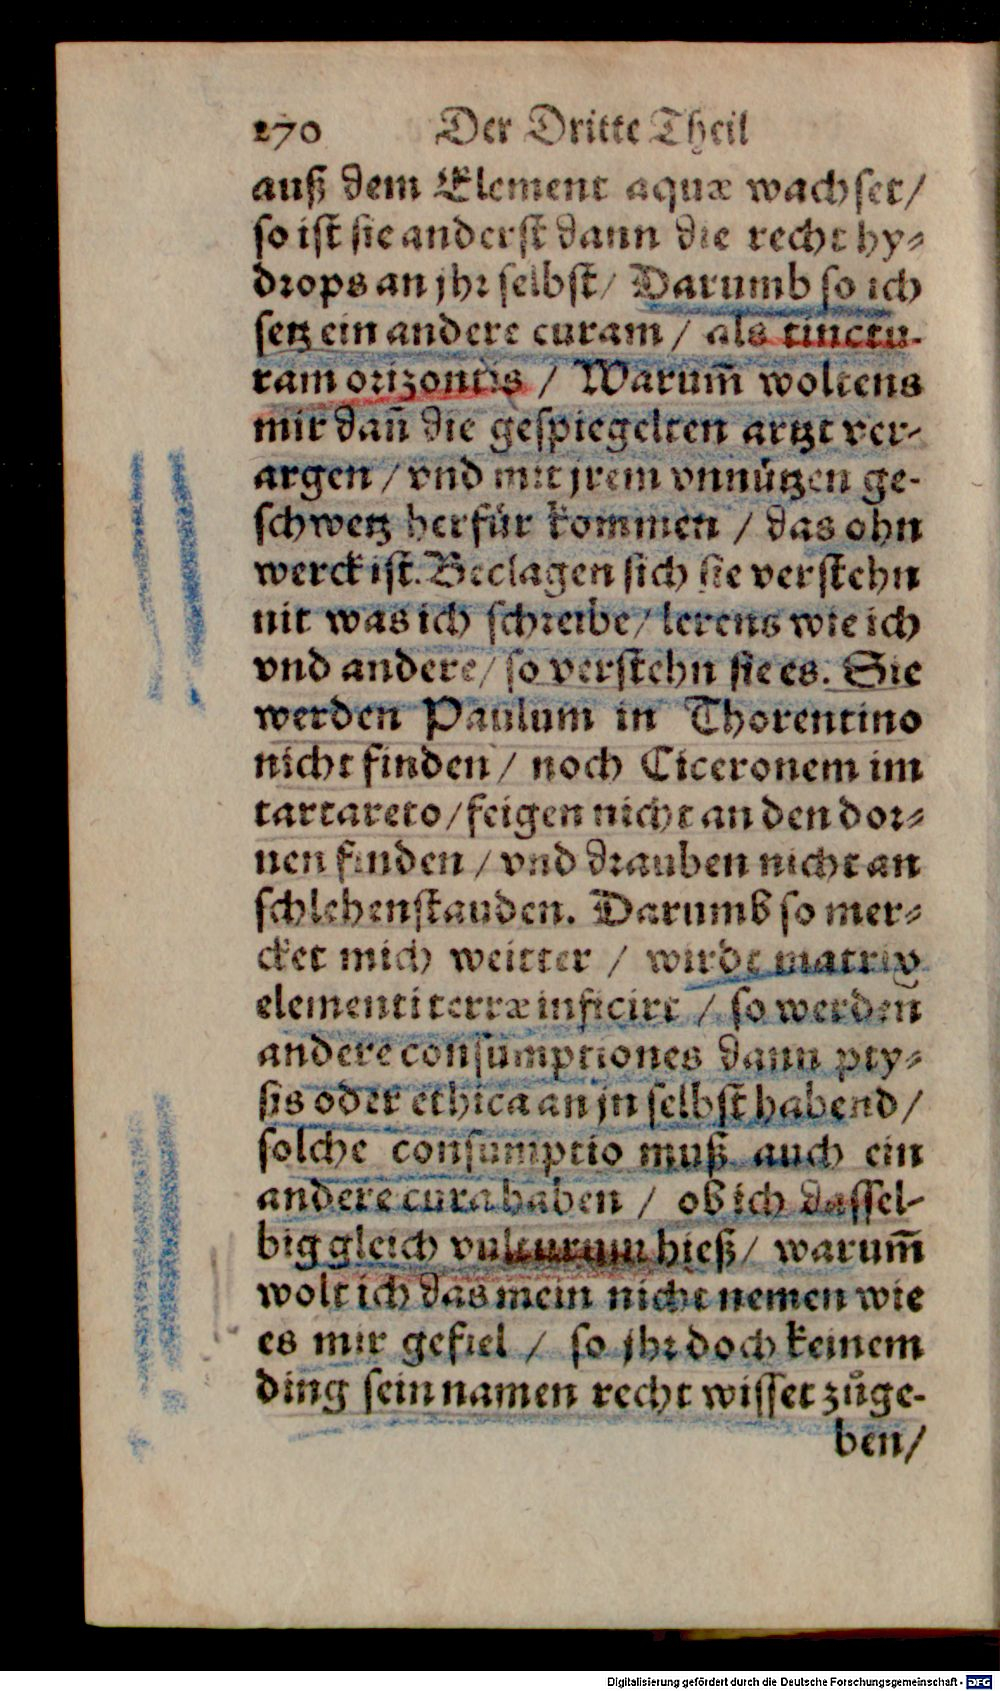 270 Der Dritte Theil
auß dem Element aquæ wachset/
so ist sie anderst dann die recht hy⸗
drops an jhr selbst/ Darumb so ich
setz ein andere curam / als tinctu-
ram orizontis / Warum̃ woltens
mir dañ die gespiegelten artzt ver-
argen / vnd mit jrem vnnützen ge-
schwetz herfür kommen / das ohn
werck ist. Beclagen sich sie verstehn
nit was ich schreibe/ lerens wie ich
vnd andere/ so verstehn sie es. Sie
werden Paulum in Thorentino
nicht finden/ noch Ciceronem im
tartareto/feigen nicht an den dor⸗
nen finden / vnd drauben nicht an
schlehenstauden. Darumb so mer⸗
cket mich weitter / wirdt matrix
elementi terræ inficirt / so werden
andere consumptiones dann pty⸗
sis oder ethica an jn selbst habend/
solche consumptio muß auch ein
andere cura haben / ob ich dassel-
big gleich vulturum hieß/ warum̃
wolt ich das mein nicht nemen wie
es mir gefiel / so jhr doch keinem
ding sein namen recht wisset zůge-
ben/
Digitalisierung gefördert durch die Deutsche Forschungsgemeinschaft - DFG